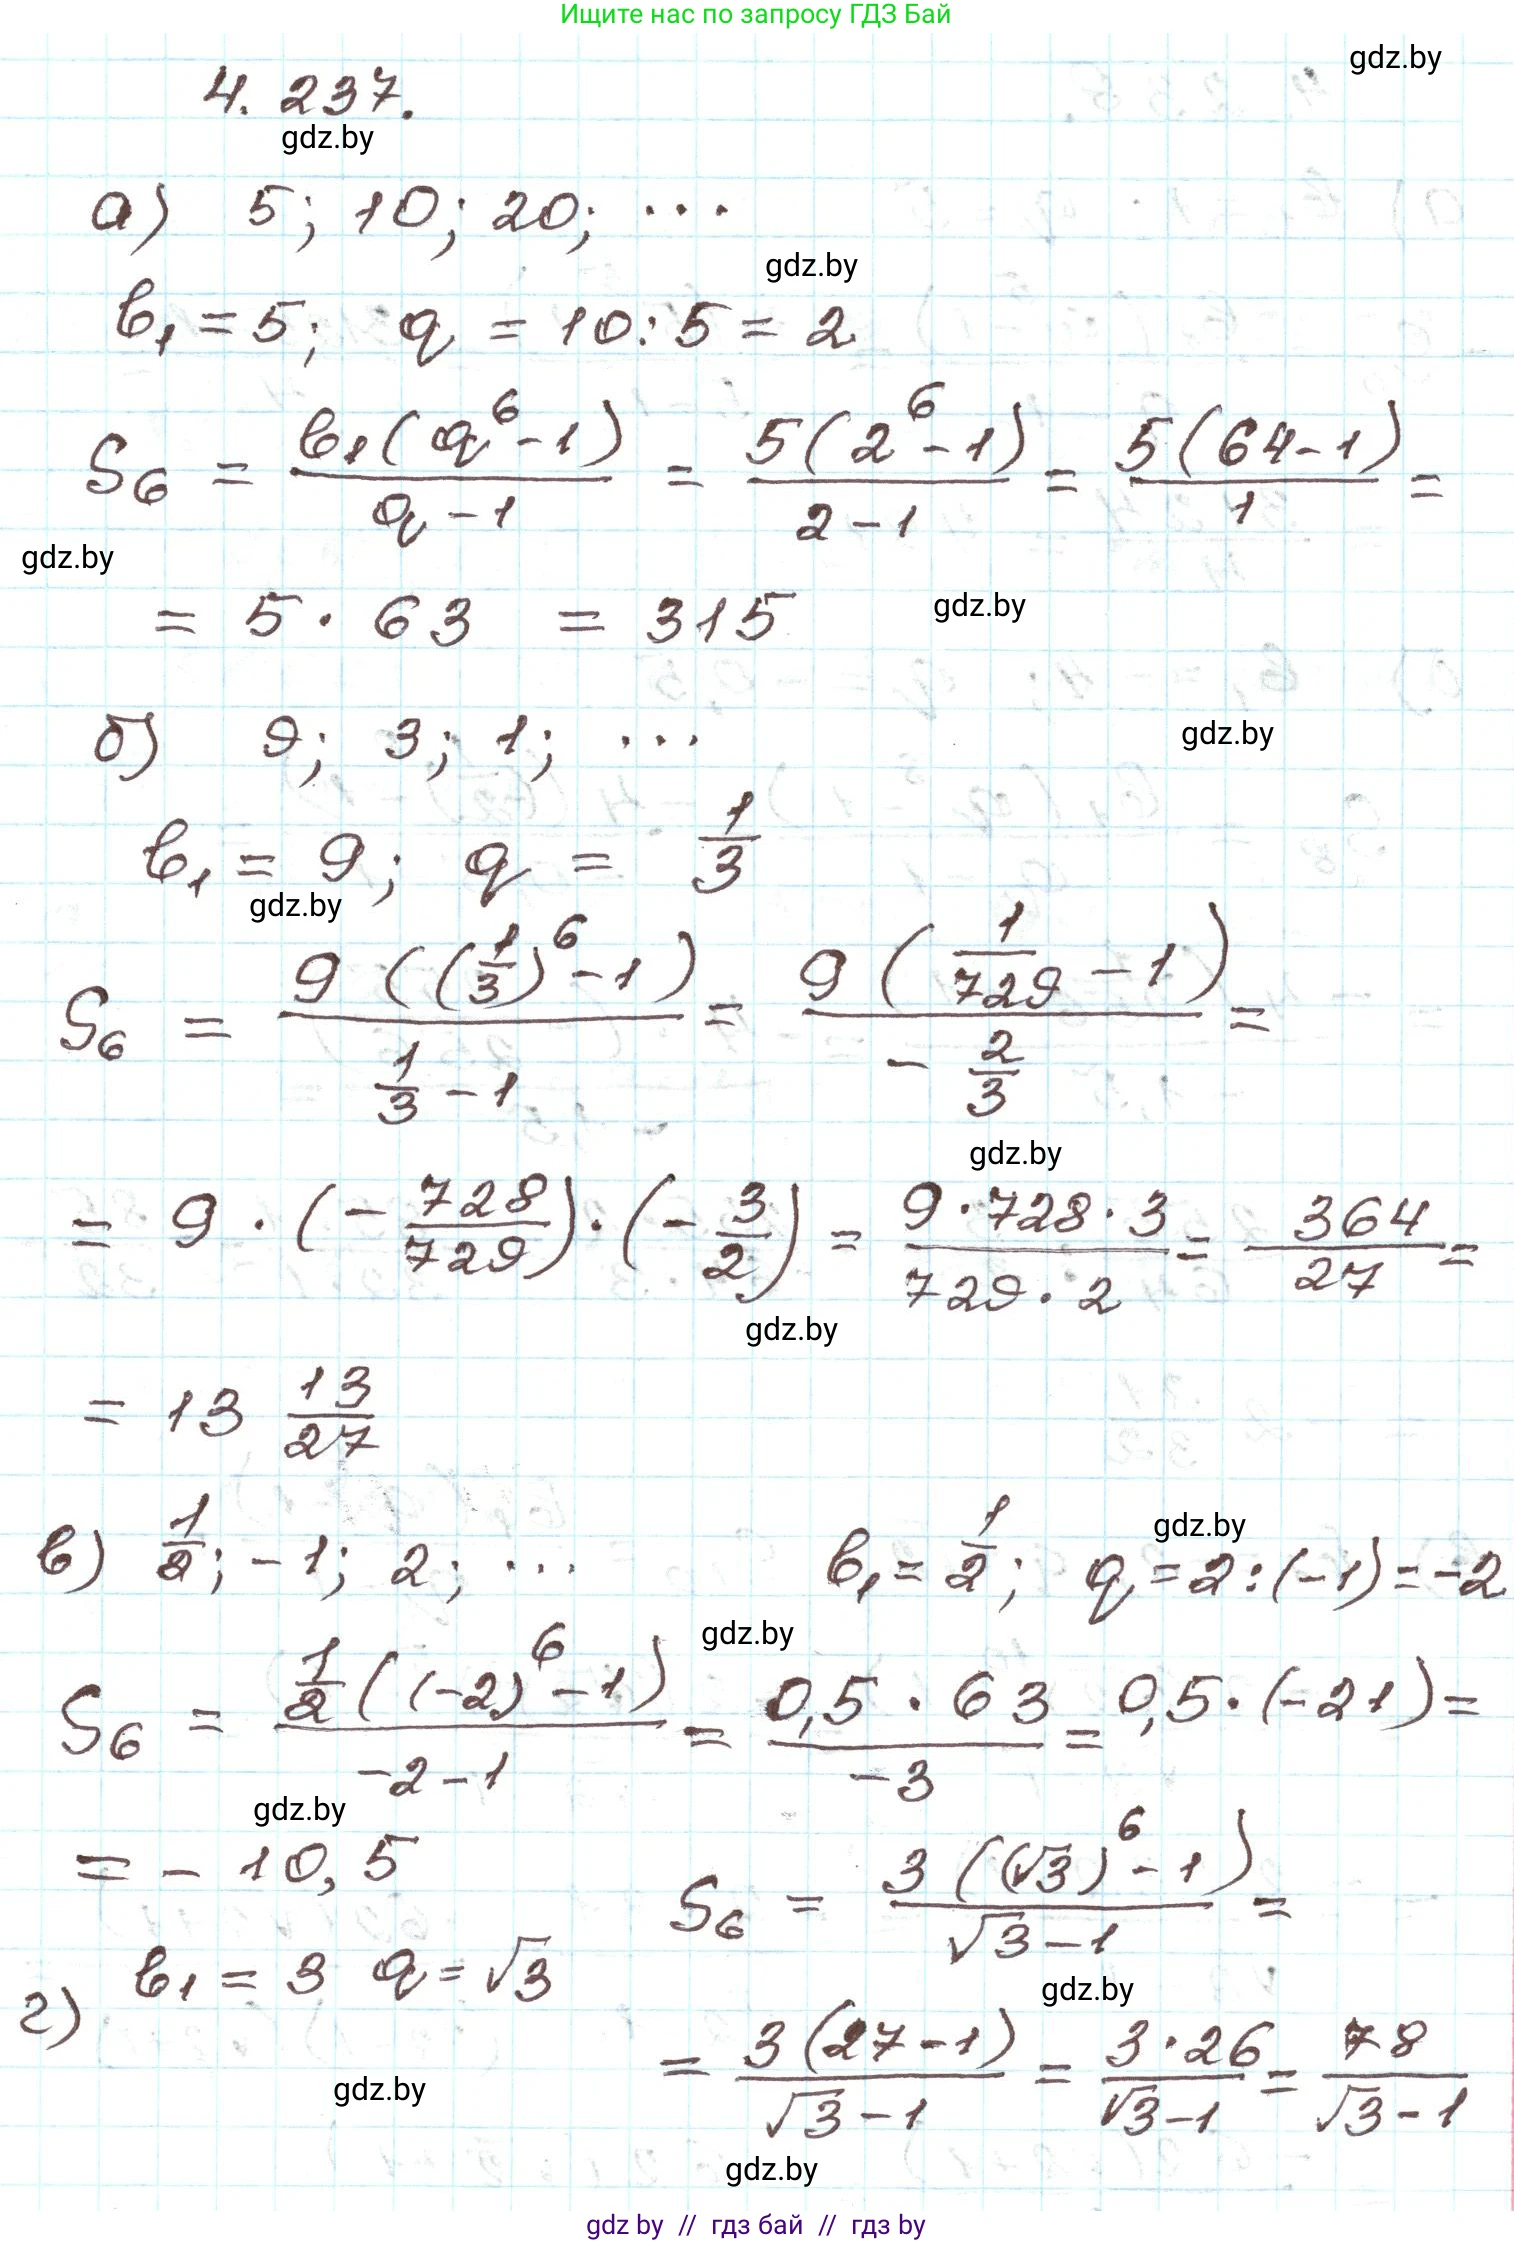 Ищите нас по запросу ГДЗ Бай
gdz.by
4. 237.
gdz.by
а) 5; 10; 20; ...
gdz.by
b₁ = 5; q = 10:5 = 2
S₆ = b₁(q⁶-1)/(q-1) = 5(2⁶-1)/(2-1) = 5(64-1)/1 =
gdz.by
= 5 · 63 = 315
gdz.by
б) 9; 3; 1; ...
gdz.by
b₁ = 9; q = 1/3
gdz.by
S₆ = 9((1/3)⁶-1)/(1/3-1) = 9(1/729-1)/(-2/3) =
gdz.by
= 9 · (-728/729) · (-3/2) = 9·728·3/(729·2) = 364/27 =
gdz.by
= 13 13/27
в) 1/2; -1; 2; ... b₁ = 1/2; q = 2:(-1) = -2
gdz.by
gdz.by
S₆ = 1/2((-2)⁶-1)/(-2-1) = 0,5 · 63/(-3) = 0,5·(-21) =
gdz.by
= - 10,5
г) b₁ = 3 q = √3
S₆ = 3((√3)⁶-1)/(√3-1) =
gdz.by
= 3(27-1)/(√3-1) = 3·26/(√3-1) = 78/(√3-1)
gdz.by
gdz.by
gdz by // гдз бай // гдз by